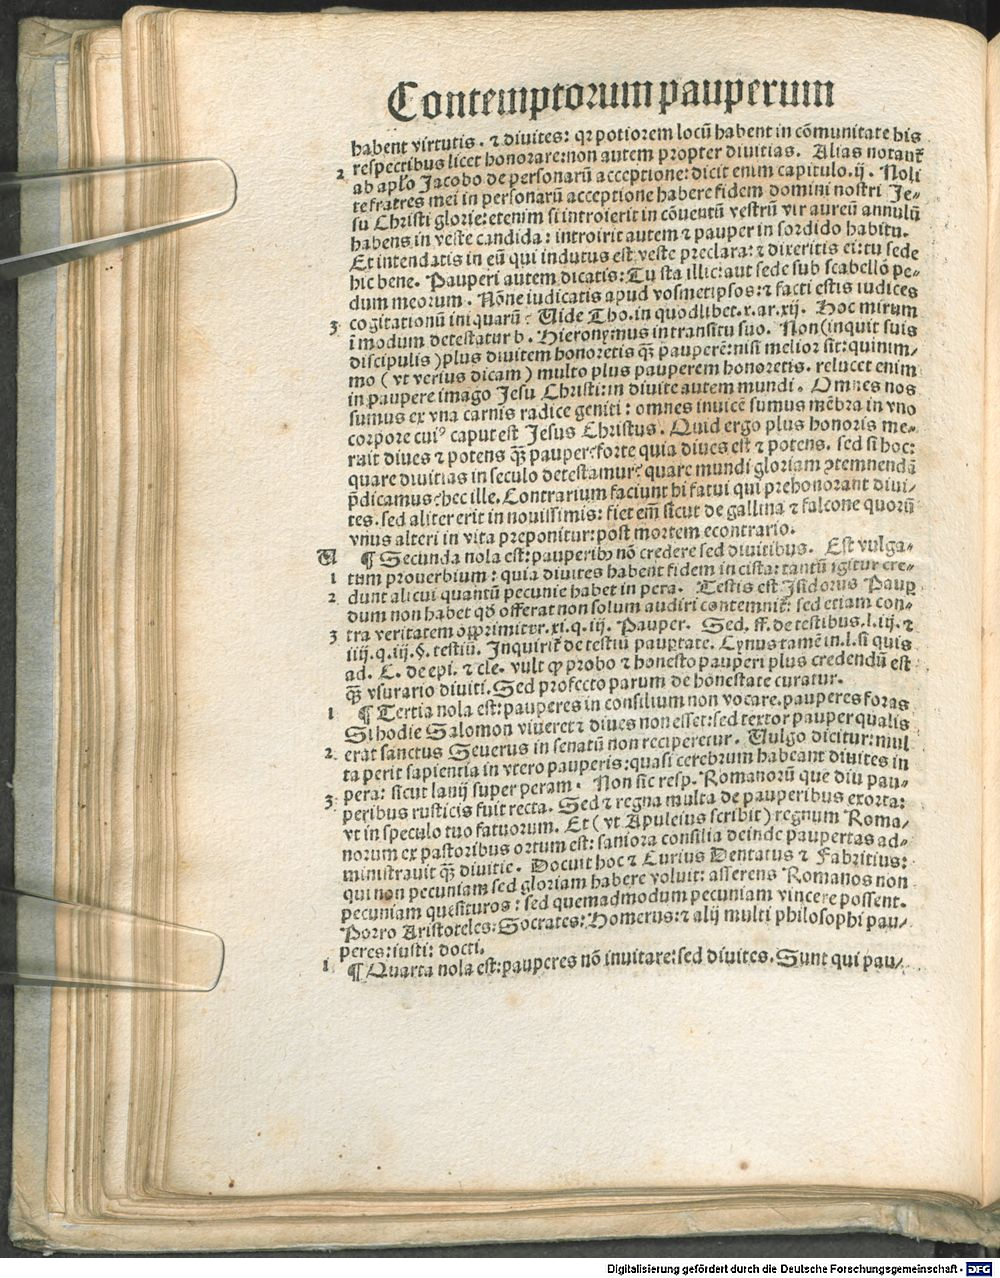 Contemptorum pauperum
habent virtutis. ⁊ diuites: qꝛ potiorem locū habent in cōmunitate his
respectibus licet honorare: non autem propter diuitias. Alias notant̄
2 ab apl'o Jacobo de personarū acceptione: dicit enim capitulo.ij. Noli
te fratres mei in personarū acceptione habere fidem domini nostri Je-
su Christi glorie: etenim si introierit in cōuentū vestrū vir aureū annulū
habens in veste candida: introirit autem ⁊ pauper in sordido habitu.
Et intendatis in eū qui indutus est veste preclara: ⁊ dixeritis ei: tu sede
hic bene. Pauperi autem dicatis: Tu sta illic: aut sede sub scabellō pe-
dum meorum. Nōne iudicatis apud vosmetipsos: ⁊ facti estis iudices
cogitationū iniquarū? Uide Tho. in quodlibet.x.ar.xij. Hoc mirum
3 ī modum detestatur b. Hieronymus in transitu suo. Non (inquit suis
discipulis) plus diuitem honoretis qꝫ̄ pauperē: nisi melior sit: quinim-
mo (vt verius dicam) multo plus pauperem honoretis. relucet enim
in paupere imago Jesu Christi: in diuite autem mundi. Omnes nos
sumus ex vna carnis radice geniti: omnes inuicē sumus mēbra in vno
corpore cui⁹ caput est Jesus Christus. Quid ergo plus honoris me-
rait diues ⁊ potens qꝫ̄ pauper: forte quia diues est ⁊ potens. sed si hoc:
quare diuitias in seculo detestamur? quare mundi gloriam ꝯtemnendā
p̄dicamus? hec ille. Contrarium faciunt hi fatui qui prehonorant diui-
tes. sed aliter erit in nouissimis: fiet em̄ sicut de gallina ⁊ falcone quorū
vnus alteri in vita preponitur: post mortem econtrario.
U ¶ Secunda nola est: pauperibꝫ nō credere sed diuitibus. Est vulga-
1 tum prouerbium: quia diuites habent fidem in cista: tantū igitur cre-
2 dunt alicui quantū pecunie habet in pera. Testis est Isidorus Paup
dum non habet qd̄ offerat non solum audiri contemnit̄: sed etiam con-
3 tra veritatem opprimitur.xi.q.iij. Pauper. Sed. ff. de testibus.l.iij. ⁊
iiij.q.iij.§. testiū. Inquirit̄ de testiū paup̱tate. Cynus tamē in.l. si quis
ad. C. de epi. ⁊ cle. vult ꝙ probo ⁊ honesto pauperi plus credendū est
qꝫ̄ vsurario diuiti. Sed profecto parum de honestate curatur.
1 ¶ Tertia nola est: pauperes in consilium non vocare. pauperes foras
Si hodie Salomon viueret ⁊ diues non esset: sed textor pauper qualis
2 erat sanctus Seuerus in senatū non reciperetur. Uulgo dicitur: mul
ta perit sapientia in vtero pauperis: quasi cerebrum habeant diuites in
pera: sicut lanij super peram. Non sic resp. Romanorū que diu pau-
3 peribus rusticis fuit recta. Sed ⁊ regna multa de pauperibus exorta:
vt in speculo tuo fatuorum. Et (vt Apuleius scribit) regnum Roma-
norum ex pastoribus ortum est: saniora consilia deinde paupertas ad-
ministrauit qꝫ̄ diuitie. Docuit hoc ⁊ Curius Dentatus ⁊ Fabritius:
qui non pecuniam sed gloriam habere voluit: asserens Romanos non
pecuniam quesituros: sed quemadmodum pecuniam vincere possent.
Porro Aristoteles: Socrates: Homerus: ⁊ alij multi philosophi pau-
peres: iusti: docti.
1 ¶ Quarta nola est: pauperes nō inuitare: sed diuites. Sunt qui pau-
Digitalisierung gefördert durch die Deutsche Forschungsgemeinschaft - DFG